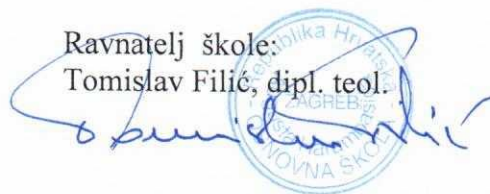 Ravnatelj škole:
Tomislav Filić, dipl. teol.
Republika Hrvatska
ZAGREB
OSNOVNA ŠKOLA
Tomislav Filić